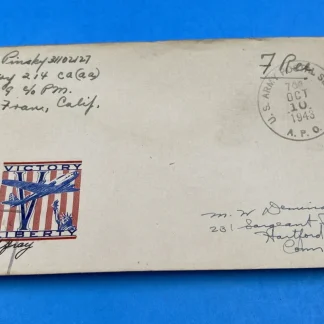 Pinsky 31102127
214 CA(AA)
% P.M.
Fran, Calif.
Free
U.S. ARMY
OCT
10
1943
A.P.O.
VICTORY
V
LIBERTY
M. W.
231 Sargeant
Hartford
Conn